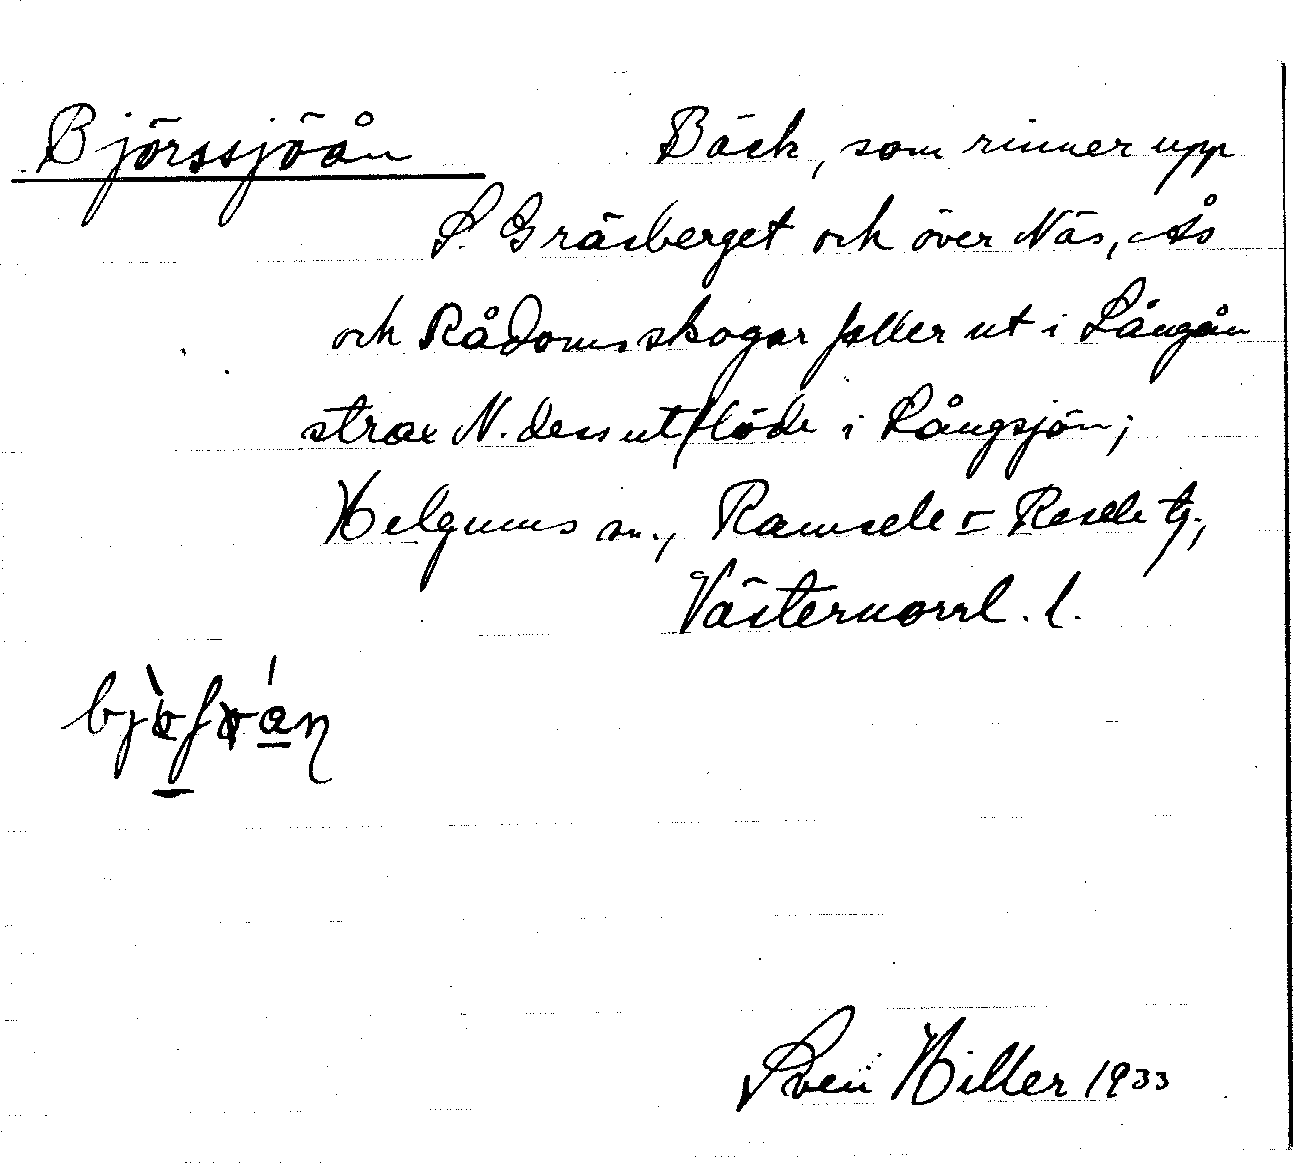 Björssjöån Bäck, som rinner upp
S. Gräsberget och över Näs, Ås
och Rådoms skogar faller ut i Långån
strax N. dess utflöde i Långsjön;
Helgums sn., Ramsele o Resele tg.,
Västernorrl. l.
Sven Hiller 1933